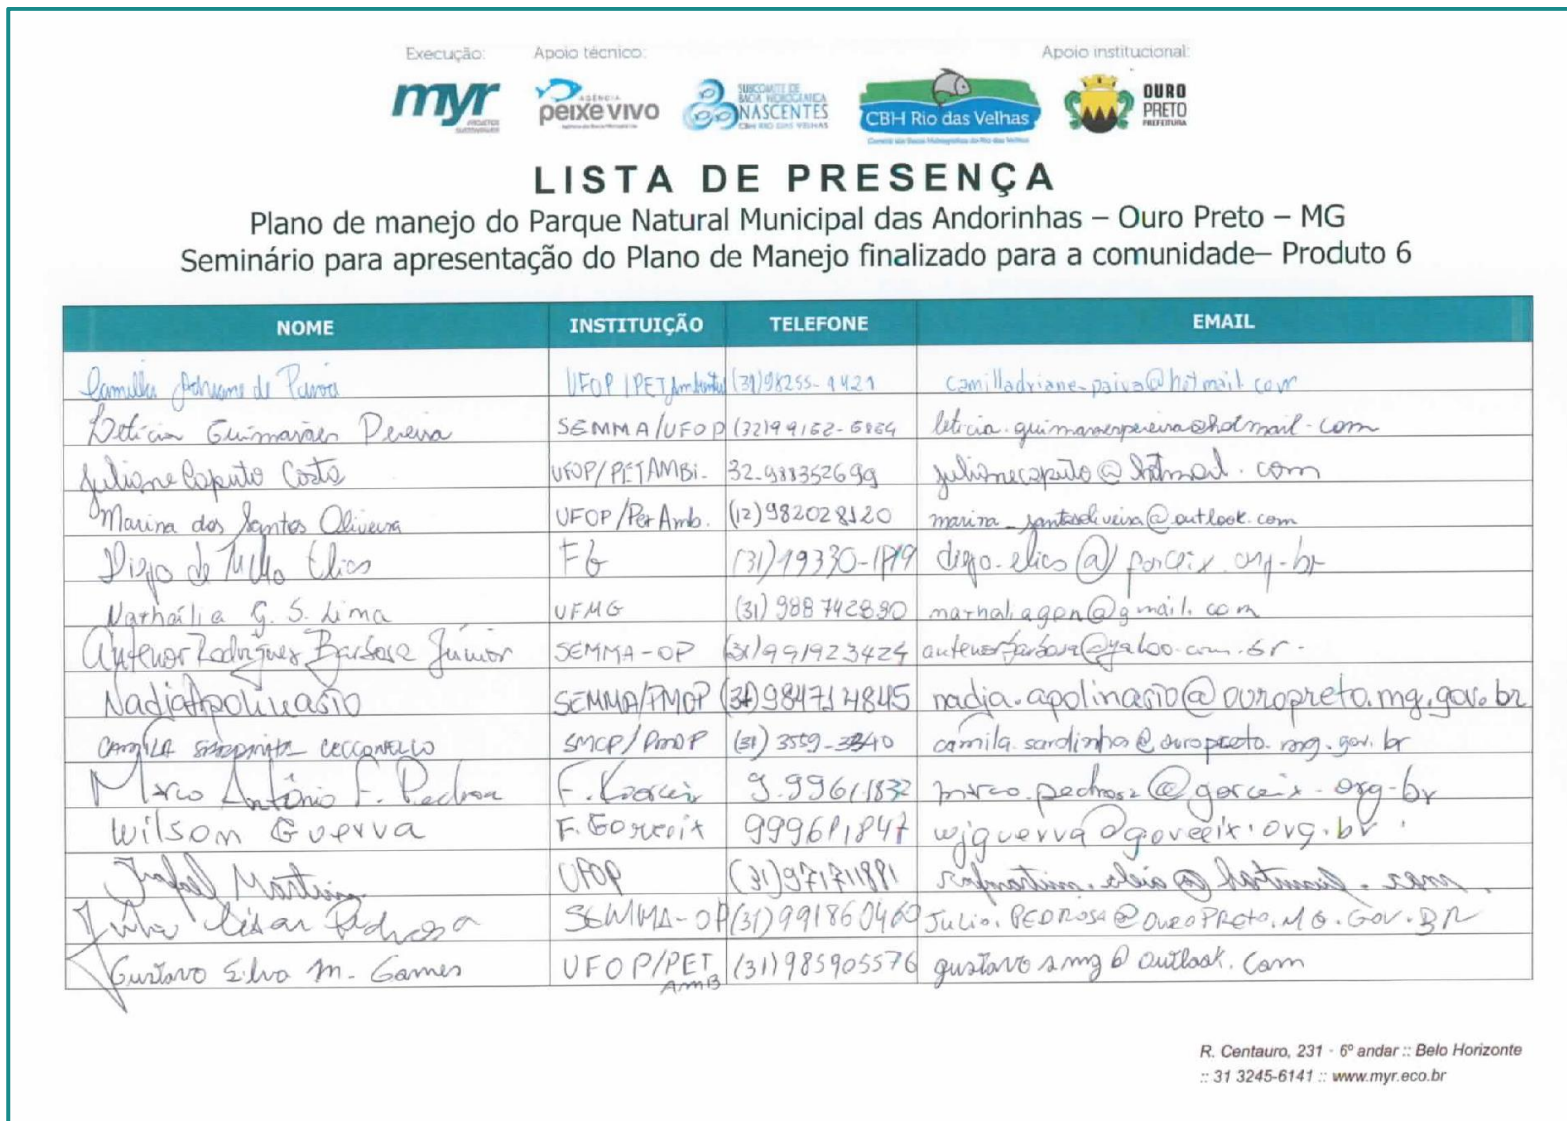 Execução: Apoio técnico: Apoio institucional:
myr PROJETOS SUSTENTÁVEIS AGÊNCIA peixe vivo SUBCOMITÊ DE BACIA HIDROGRÁFICA NASCENTES CBH RIO DAS VELHAS CBH Rio das Velhas OURO PRETO PREFEITURA
LISTA DE PRESENÇA
Plano de manejo do Parque Natural Municipal das Andorinhas – Ouro Preto – MG
Seminário para apresentação do Plano de Manejo finalizado para a comunidade– Produto 6
NOME INSTITUIÇÃO TELEFONE EMAIL
Camilla Adriane de Paiva UFOP/PETAmbiental (31)98255-1421 camilladriane_paiva@hotmail.com
Letícia Guimarães Pereira SEMMA/UFOP leticia.guimaraespereira@hotmail.com
Juliane Caputo Costa UFOP/PETAMBi. 32-988352699 julianecaputo@hotmail.com
Marina dos Santos Oliveira UFOP/Pet Amb. (12)982028120 marina_santosoliveira@outlook.com
Diego de Mello Elias
Nathália G. S. Lima UFMG (31) 988742890
Antenor Rodrigues Barbosa Júnior SEMMA-OP (31)991923424 antenorbarbosa@yahoo.com.br
Nadja Apolinario SEMMA/PMOP (31)984714845 nadja.apolinario@ouropreto.mg.gov.br
CAMILA SMCP/PMOP camila.sardinha@ouropreto.mg.gov.br
Marco Antônio F. Pedrosa 9.9961-1832 marco.pedrosa@gorceix.org.br
Wilson Guerra F. Gorceix 999611847 wjguerra@gorceix.org.br
Rafael Martins UFOP (31)971711881
Julio César Pedrosa SEMMA-OP (31)991860460 JULIO.PEDROSA@OUROPRETO.MG.GOV.BR
Gustavo Silva M. Gomes UFOP/PET AMB (31)985905576 gustavosmg@outlook.com
R. Centauro, 231 - 6º andar :: Belo Horizonte
:: 31 3245-6141 :: www.myr.eco.br